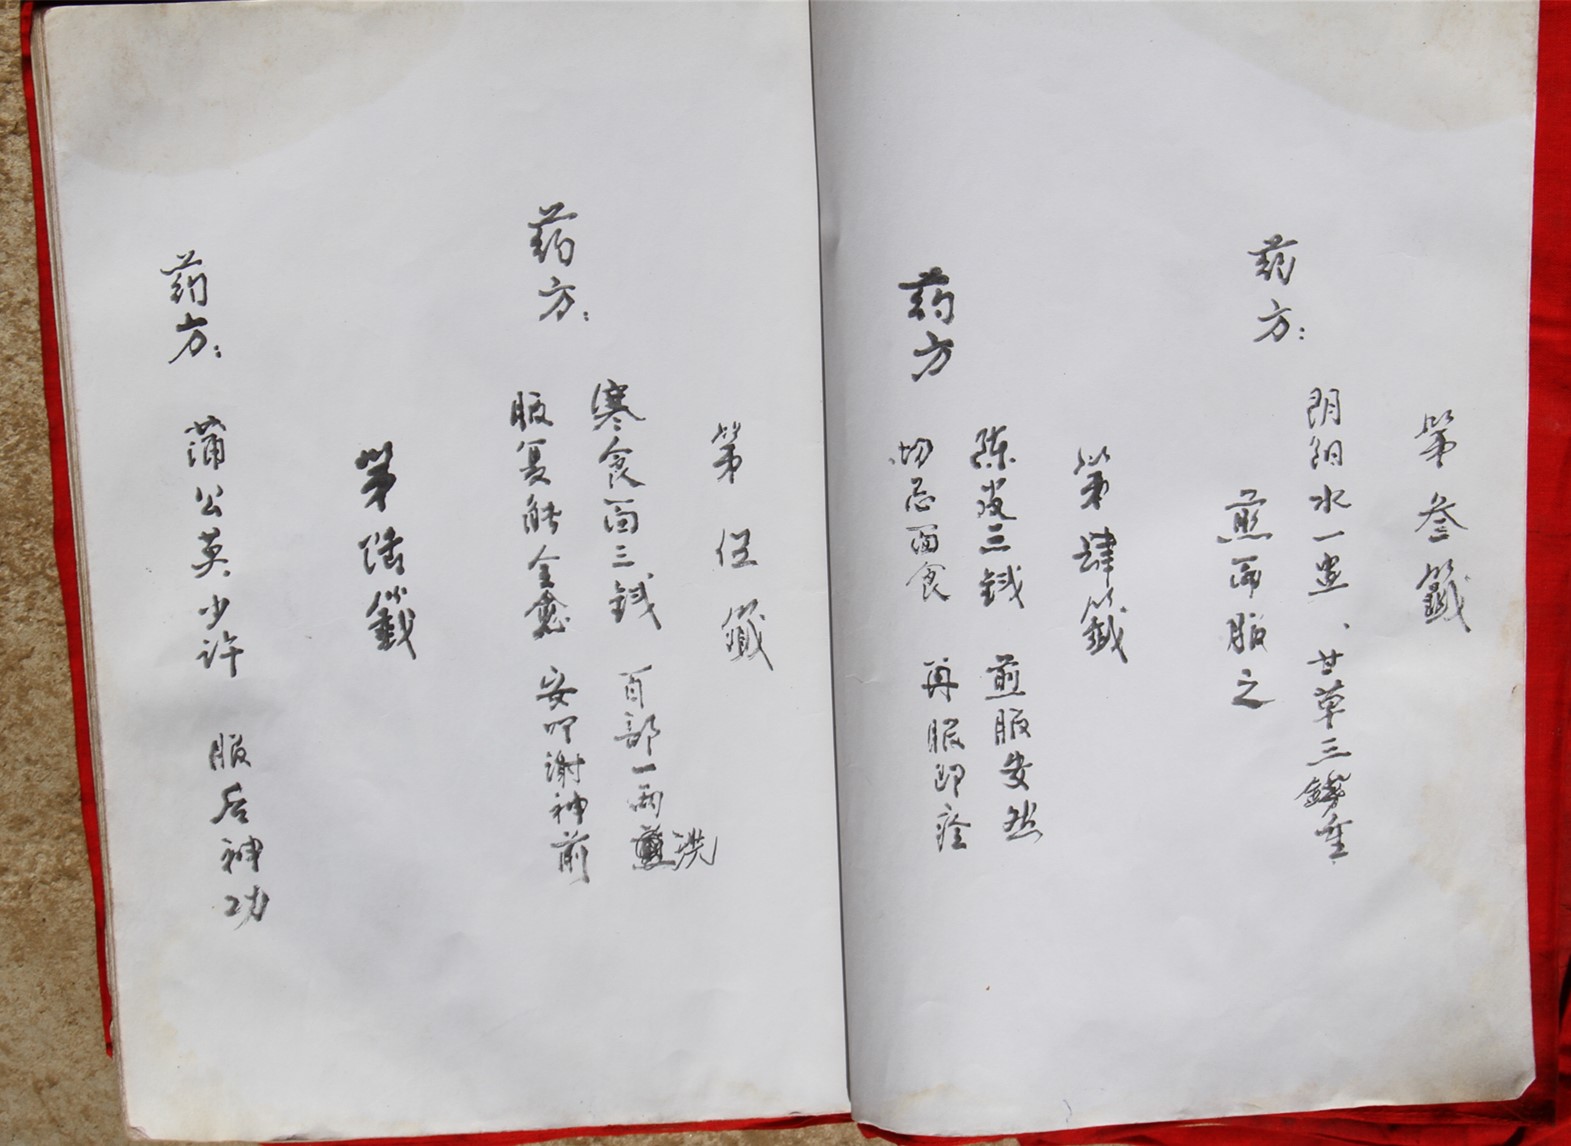 第叁籤
药方:
阴阳水一盅、甘草三钱重
煎而服之
第肆籤
药方
陈皮三钱 煎服安然
切忌面食 再服即痊
第伍籤
药方:
寒食面三钱 百部一两 洗
服复能全愈 安叩谢神前
第陆籤
药方:
蒲公英少许 服后神功